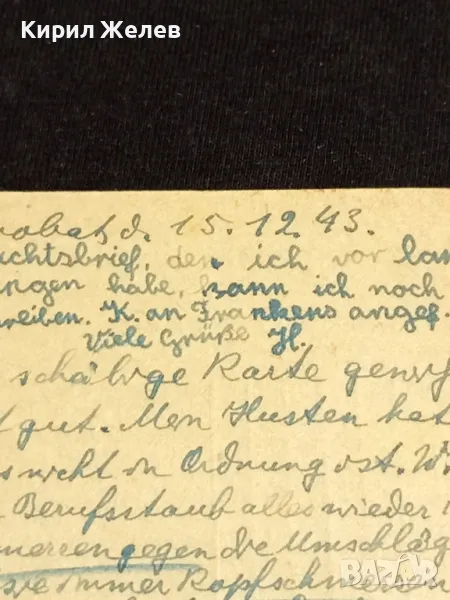 Кирил Желев
robat, d. 15.12.43.
uchtsbrief, den ich vor lan
angen habe, kann ich noch
reiben. K. an Frankens angef.
Viele Grüße H.
schäbige Karte genüg
t gut. Mein Husten hat
s nicht in Ordnung ist. Wi
Berufsstaub alles wieder
merzen gegen die Umschläg
sie immer Kopfschmerzen
BAZAR